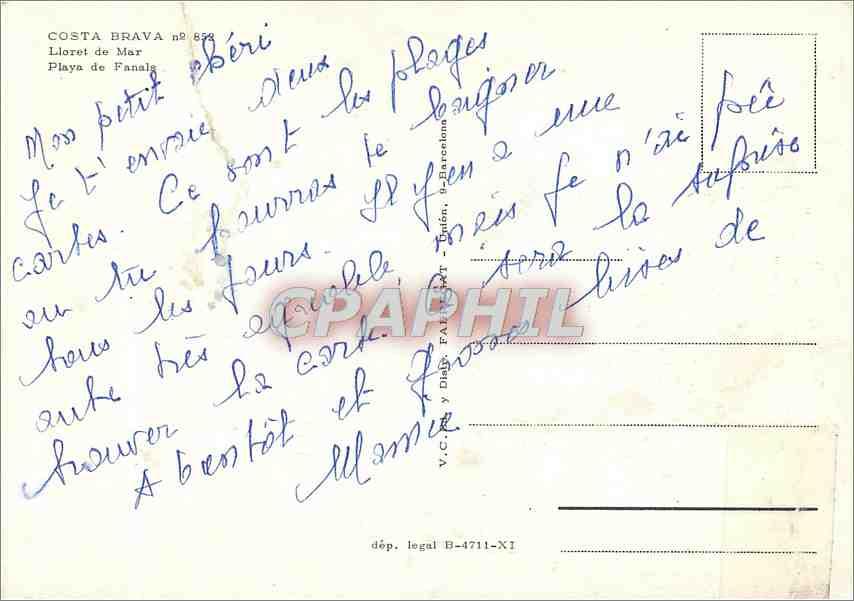 COSTA BRAVA nº 852
Lloret de Mar
Playa de Fanals
Mon petit chéri
Je t'envoie deux
cartes. Ce sont les plages
ou tu pourras te baigner
tous les jours. Il y en a une
autre très agréable mais je n'ai pû
trouver la carte. Ce sera la surprise
A bientôt et grosses bises de
Mamie
V. C. y Distr. FABREGAT - Unión, 9-Barcelona
CPAPHIL
dép. legal B-4711-XI